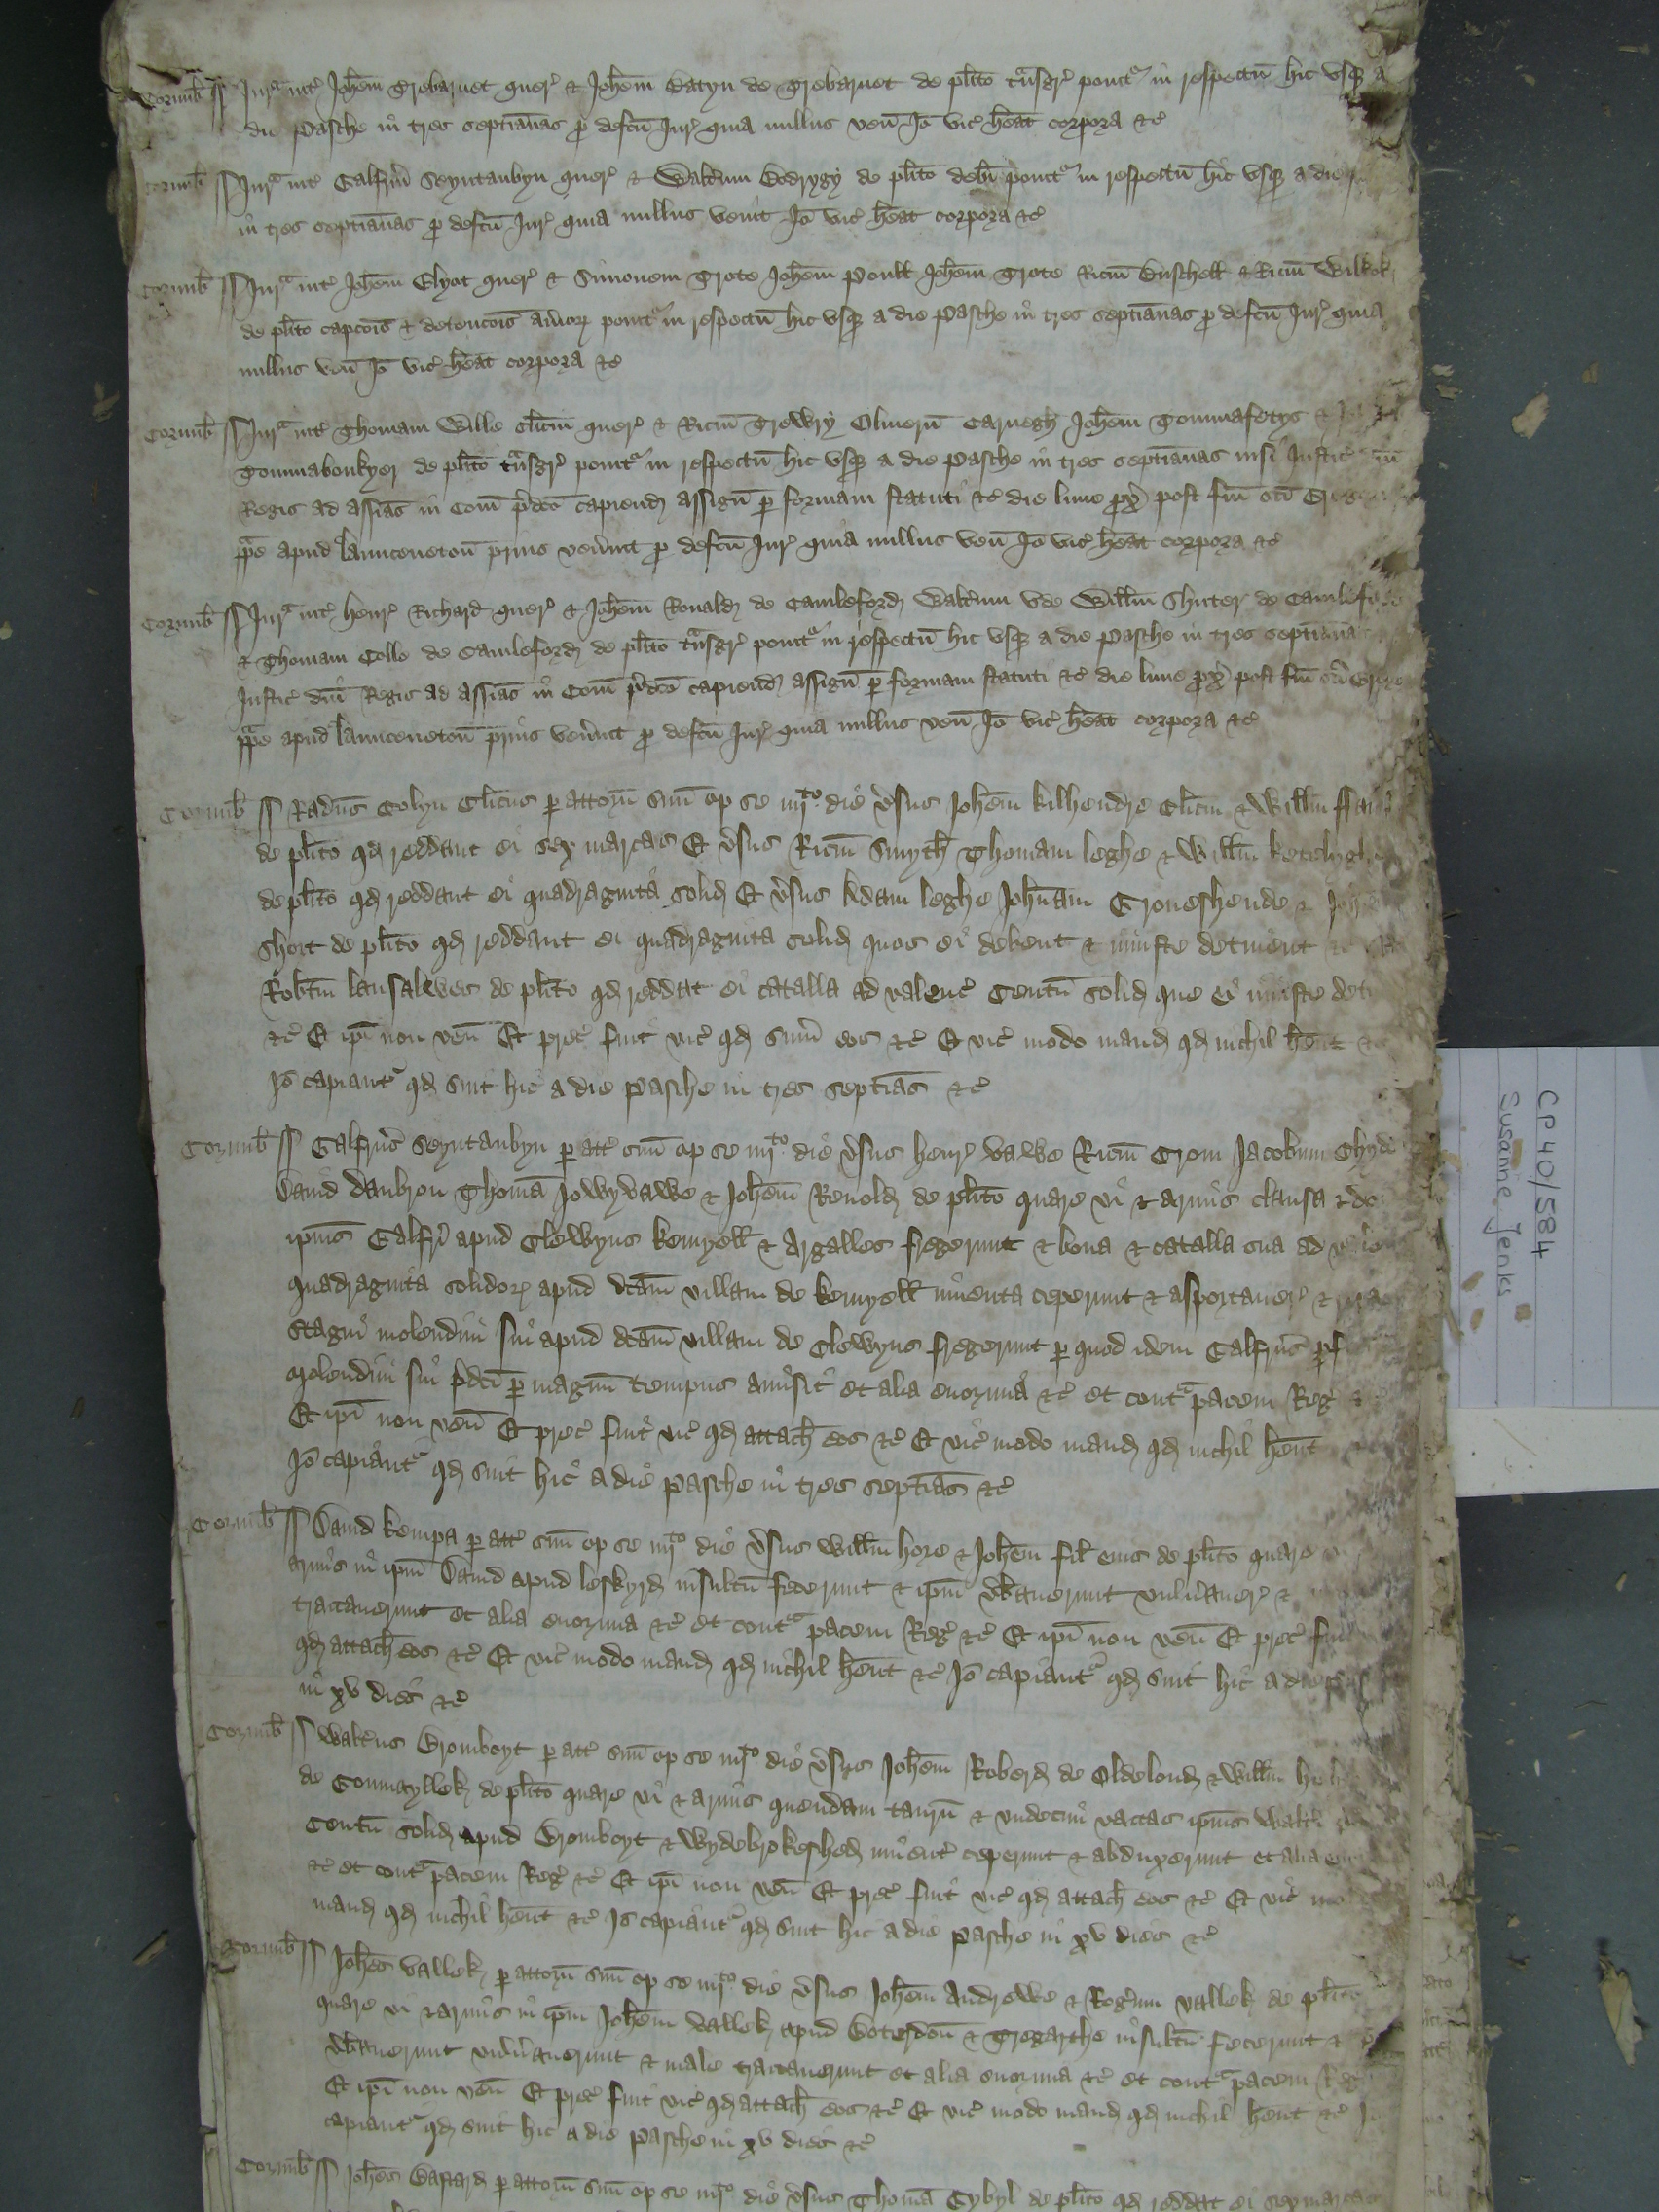 Cornub Jur int Johem Trebarvet quer & Johem Batyn de Trebarvet de plito tnsgr ponit in respectu hic usq a
die Pasche in tres septianas p defcu Jur quia nullus ven Io vic heat corpora &c
Cornub Jur int Galfrm Seyntaubyn quer & Waltrum Bodrygy de plito debi ponit in respectu hic usq a die
in tres septianas p defcu Jur quia nullus venit Io vic heat corpora &c
Cornub Jur int Johem Elyot quer & Simonem Grote Johem Poull Johem Grote Ricm Buschell & Ricm Wilkok
de plito capcois & detencois avior ponit in respectu hic usq a die Pasche in tres septianas p defcu Jur quia
nullus ven Io vic heat corpora &c
Cornub Jur int Thomam Wille clicm quer & Ricm Trewry Oliveru Carnegh Johem Gommafetys &
Gommabonkyer de plito tnsgr ponit in respectu hic usq a die Pasche in tres septianas nisi Justic
Regis ad assias in Com pdco capiend assign p formam statuti &c die lune px post fm sci
ppe apud Launceneton prius venint p defcu Jur quia nullus ven Io vic heat corpora &c
Cornub Jur int Henr Richard quer & Johem Ronald de Camleford Waltrum Ude Willm Shuter de Camleford
& Thomam Colle de Camleford de plito tnsgr ponit in respectu hic usq a die Pasche in tres septianas
Justic dni Regis ad assias in Com pdco capiend assign p formam statuti &c die lune px post fm sci
ppe apud Launceneton prius venint p defcu Jur quia nullus ven Io vic heat corpora &c
Cornub Radus Colyn Clicus p attorn suu op se iiijto die vsus Johem Kilhendre Clicm & Willm
de plito qd reddant ei sex marcas Et vsus Ricm Smyth Thomam Leghe & Willm
de plito qd reddant ei quadraginta solid Et vsus Adam Leghe Johnam Croneshende &
Short de plito qd reddant ei quadraginta solid quos ei debent & iniuste detinent &c
Robtm Lansalewes de plito qd reddat ei catalla ad valenc Centu solid que ei iniuste
&c Et ipi non ven Et prec fuit vic qd sum eos &c Et vic modo mand qd nichil hent &c
Io capiant qd sint hic a die Pasche in tres septias &c
Cornub Galfrus Seyntaubyn p att suu op se iiijto die vsus Henr Valwe Ricm Crom Jacobum
David Daubron Thoma Jowydawe & Johem Renold de plito quare vi & armis clausa &
ipius Galfri apud Clewyns Kemyell & Argalles fregerunt & bona & catalla sua ad
quadraginta solidor apud dcam villam de Kemyell inventa ceperunt & asportaver &
stagni molendini sui apud dcam villam de Clewyns fregerunt p quod idem Galfrus
molendini sui pdci p magnu tempus amisit et alia enormia &c et cont pacem Reg &c
Et ipi non ven Et prec fuit vic qd attach eos &c Et vic modo mand qd nichil hent
Io capiant qd sint hic a die Pasche in tres septias &c
Cornub David Kempa p att suu op se iiijto die vsus Willm Hore & Johem fil eius de plito quare
armis in ipm David apud Leskyrd insultu fecerunt & ipm vbaverunt vulnaver &
tractaverunt et alia enormia &c et cont pacem Reg &c Et ipi non ven Et prec
qd attach eos &c Et vic modo mand qd nichil hent &c Io capiant qd sint hic a die
in xv dies &c
Cornub Waltus Bromboyt p att suu op se iiijto die vsus Johem Roberd de Oldelond & Willm
de Conmayllek de plito quare vi & armis quendam tauru & undecim vaccas ipius
Centu solid apud Bromboyt & Wydebrokeshed invent ceperunt & abduxerunt et alia
&c et cont pacem Reg &c Et ipi non ven Et prec fuit vic qd attach eos &c Et vic
mand qd nichil hent &c Io capiant qd sint hic a die Pasche in xv dies &c
Cornub Johes Vallek p attorn suu op se iiijto die vsus Johem Andrewe & Rogrum Vallek de plito
quare vi & armis in ipm Johem Vallek apud Boterdon & Tregarthe insultu fecerunt &
vbaverunt vulnaverunt & male tractaverunt et alia enormia &c et cont pacem Reg
Et ipi non ven Et prec fuit vic qd attach eos &c Et vic modo mand qd nichil hent &c
capiant qd sint hic a die Pasche in xv dies &c
Cornub Johes Bastard p attorn suu op se iiijto die vsus Thoma Cybyl de plito qd reddat ei sex marcas
CP 40/584
Susanne Jenks